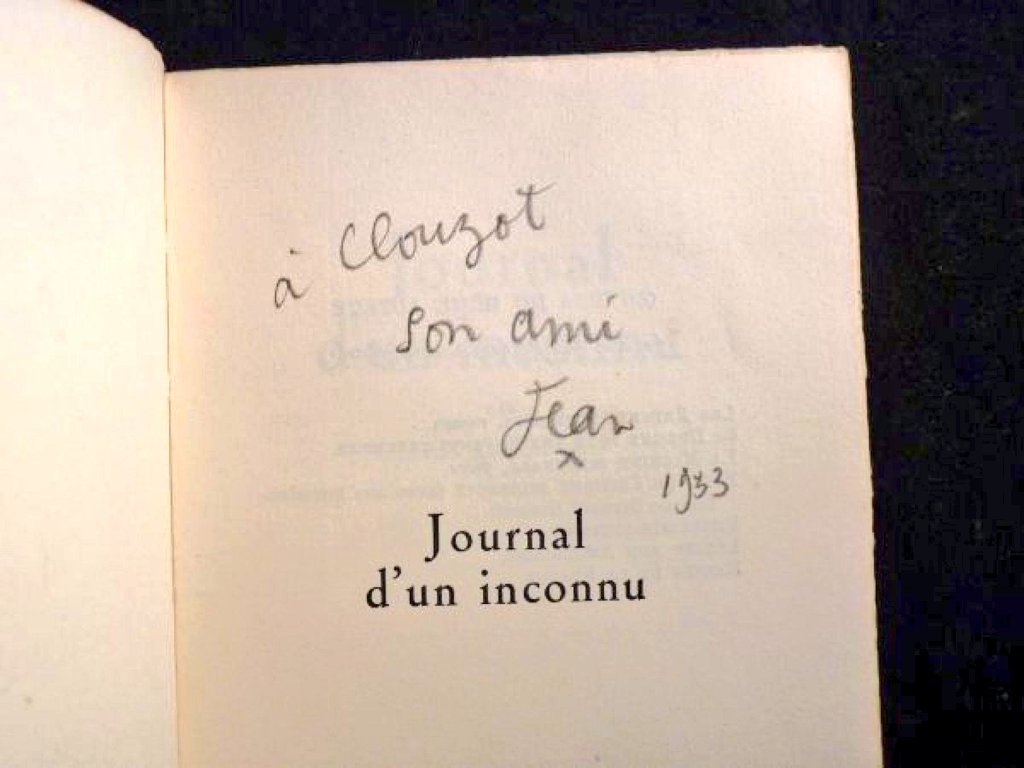 à Clouzot
son ami
Jean
1953
Journal
d'un inconnu